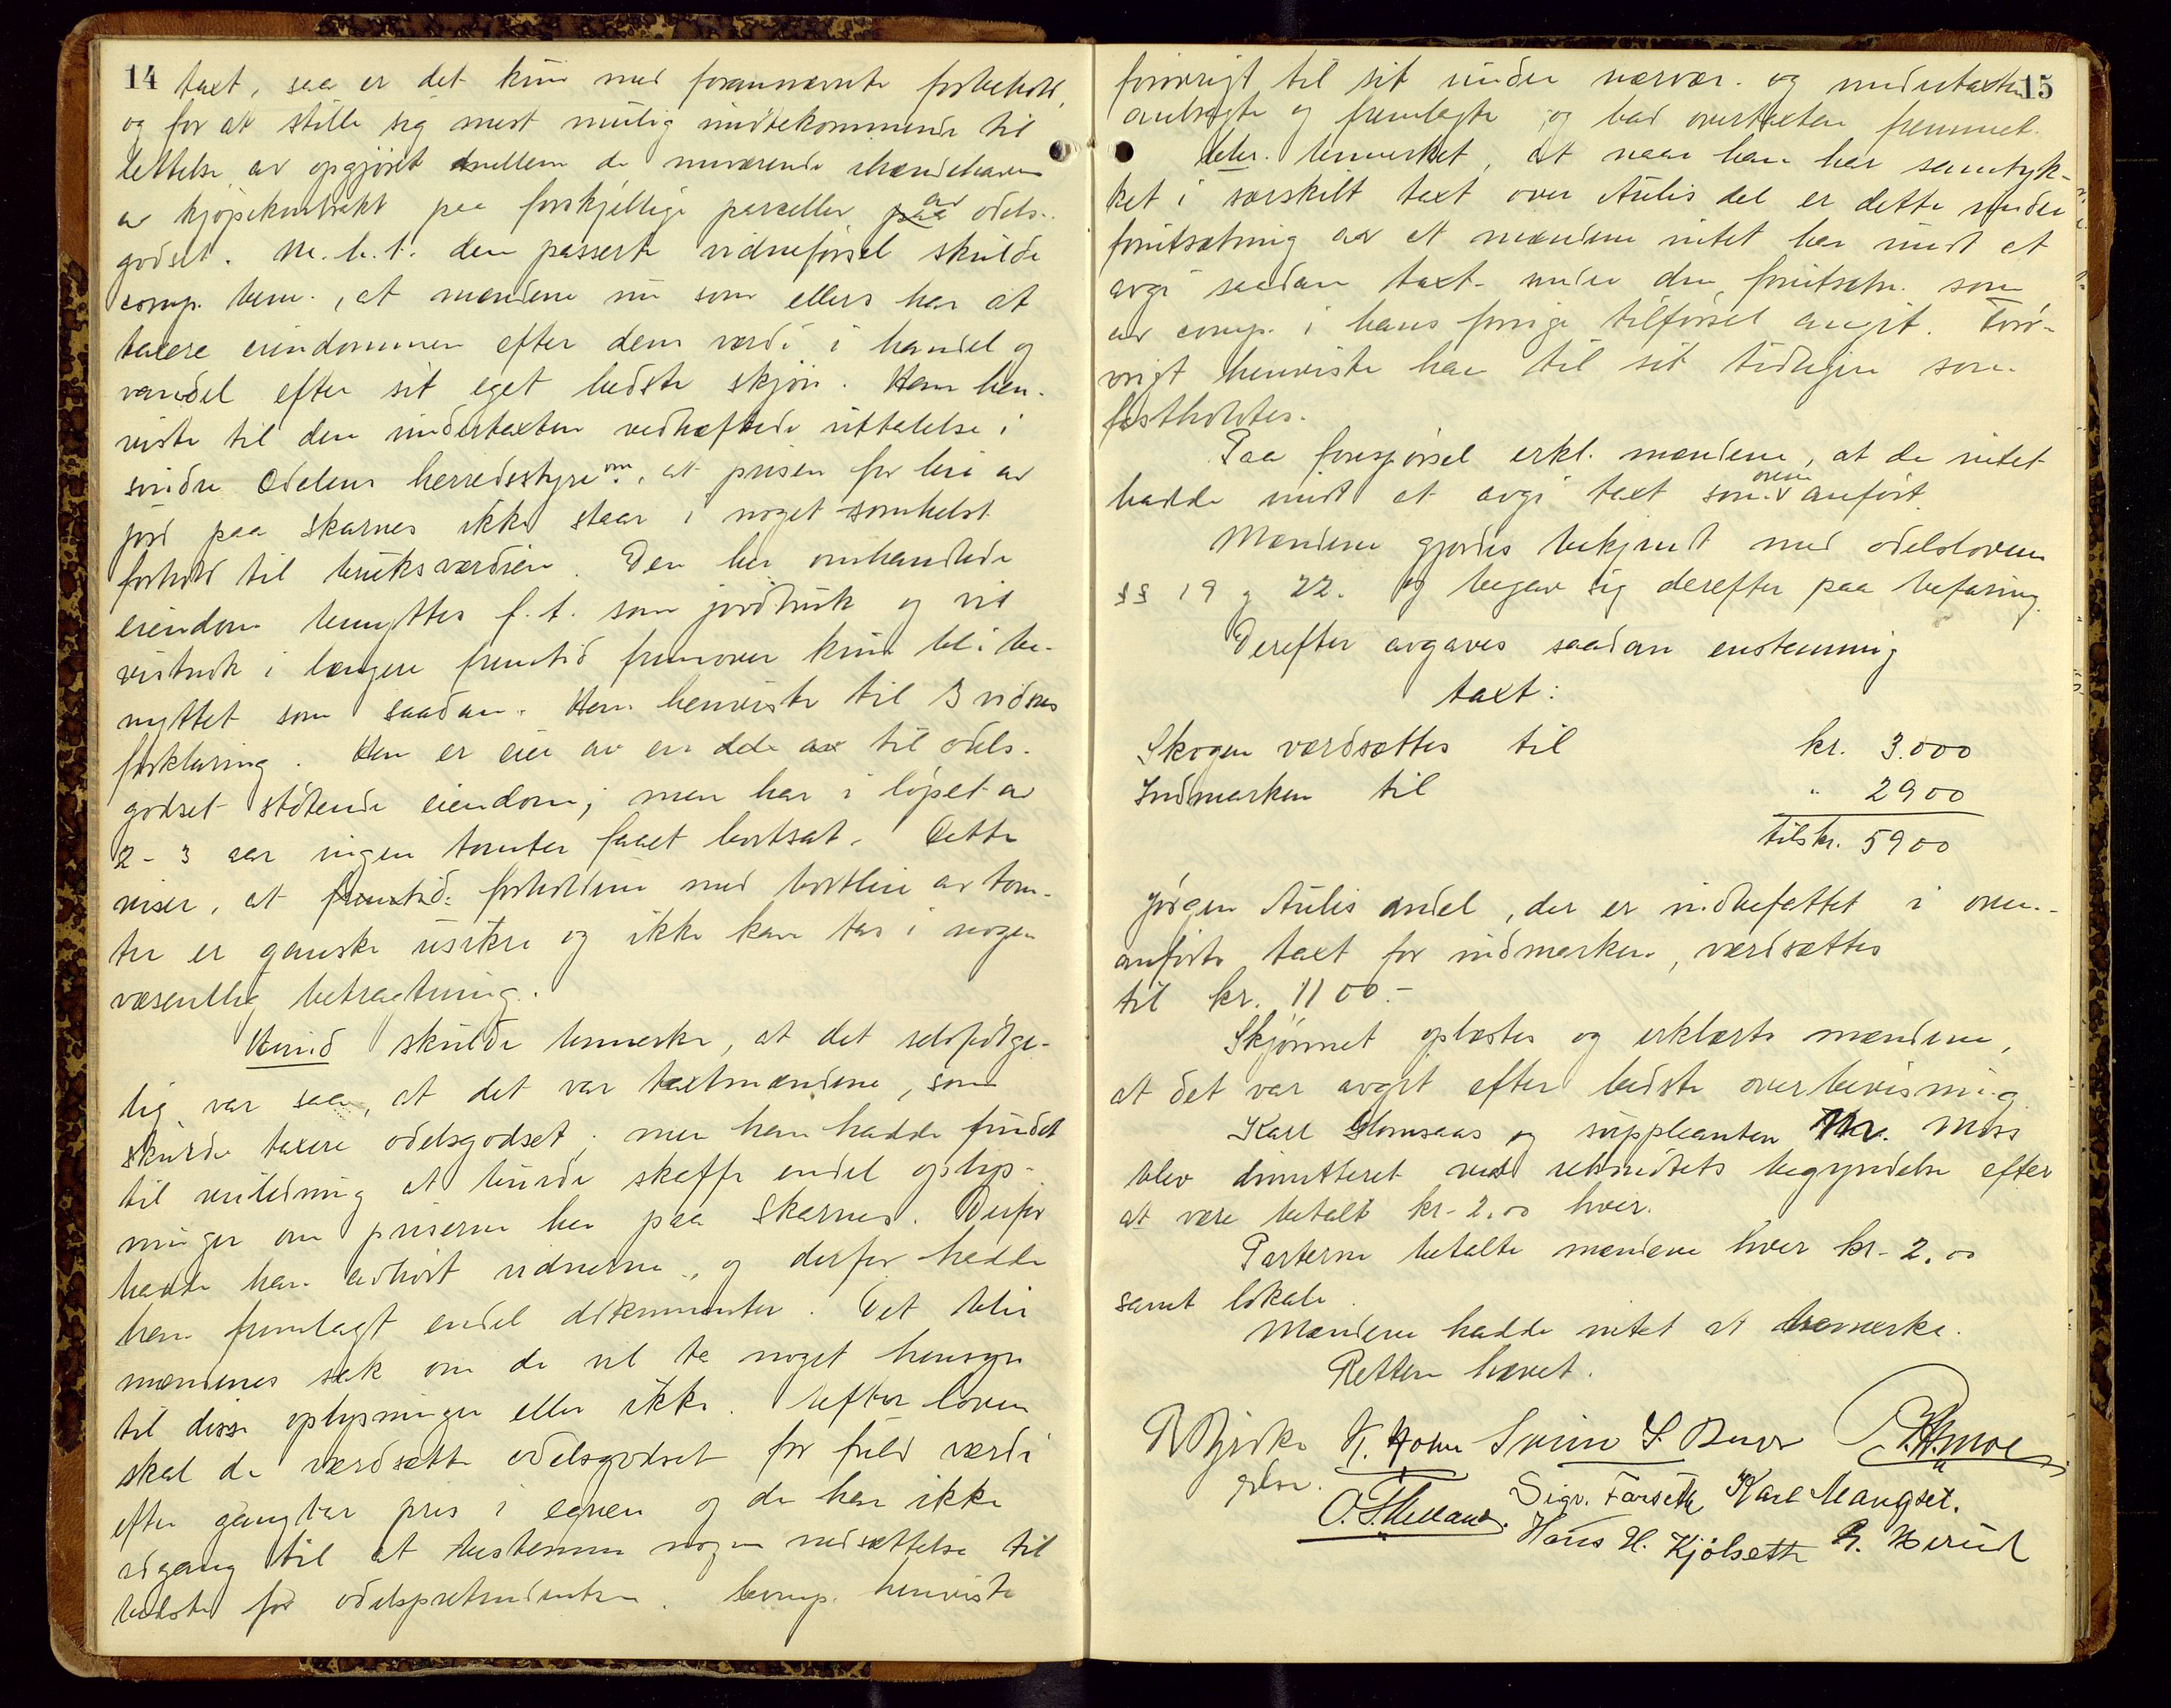 14
taxt, saa er det kun med forannævnte forbehold,
og for at stille sig mest mulig imøtekommende til
lettelse av opgjøret mellem de nuværende ihændehavere
av kjøpekontrakt paa forskjellige parceller av odels-
godset. M.h.t. den passerte vidneførsel skulde
comp. bem., at mændene nu som ellers har at
taxere eiendommen efter dens værdi i handel og
vandel efter sit eget bedste skjøn. Han hen-
viste til den undertaxten vedhæftede uttalelse i
søndre Odalens herredsstyre om, at prisen for leie av
jord paa Skarnes ikke staar i noget somhelst
forhold til bruksværdien. Den her omhandlede
eiendom benyttes f.t. som jordbruk og vil
vistnok i længere fremtid fremover kun bli be-
nyttet som saadan. Han henviste til 3 vidnes
forklaring. Han er eier av en del av til odels-
godset støtende eiendom; men har i løpet av
2-3 aar ingen tomter faaet bortsat. Dette
viser, at fremtid: forholdene med bortleie av tom-
ter er ganske usikre og ikke kan tas i nogen
væsentlig betragtning.
skulde bemerke, at det selvfølge-
lig var saa, at det var taxtmændene, som
skulde taxere odelsgodset, men han hadde fundet
til veiledning at burde skaffe endel oplys-
ninger om priserne her paa Skarnes. Derfor
hadde han avhørt vidnerne, og derfor hadde
han fremlagt endel dokumenter. Det blir
mændenes sak om de vil ta noget hensyn
til disse oplysninger eller ikke. Efter loven
skal de værdsætte odelsgodset for fuld værdi
efter gangbar pris i egnen og de har ikke
adgang til at bestemme nogen nedsættelse til
bedste for odelspretendenten. Comp. henviste
15
forøvrigt til sit under nærvær. og undertaxten
anbragte og fremlagte og bad overtaxten fremmet.
bemerket, at naar han har samtyk-
ket i særskilt taxt over Aulis del er dette under
forutsætning av at mændene intet har imot at
avgi saadan taxt under den forutsætn. som
av comp. i hans forrige tilførsel angit. Forø-
vrigt henviste han til sit tidligere som
fastholdtes.
Paa forespørsel erkl. mændene, at de intet
hadde imot at avgi taxt som oven anført.
Mændene gjordes bekjendt med odelsloven
§§ 19 og 22. og begav sig derefter paa befaring.
Derefter avgaves saadan enstemmig
taxt:
Skogen værdsættes til kr. 3.000
Indmarken til " 2900
tils kr. 5900
Jørgen Aulis andel, der er indbefattet i oven-
anførte taxt for indmarken, værdsættes
til kr. 1100.-
Skjønnet oplæstes og erklærte mændene,
at det var avgit efter bedste overbevisning.
Karl Slomsaas og suppleanten Moss
blev dimitteret ved retsmøtets begyndelse efter
at være betalt kr. 2.00 hver.
Parterne betalte mændene hver kr. 2.00
samt lokale.
Mændene hadde intet at bemerke.
Retten hævet.
Sigv. Farseth Karl Maugset.
Hans H. Kjølseth